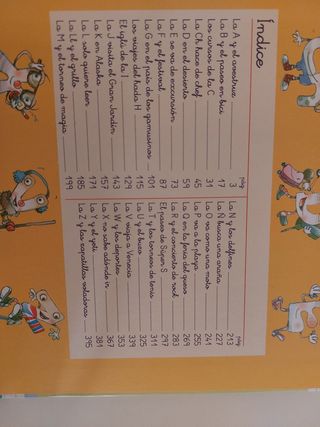 Índice
pág.
La A y el avestruz 3
La B y el paseo en bici 17
Los cursos de la C 31
La Ch hace de chef 45
La D en el desierto 59
La E se va de excursión 73
La F y el festival 87
La G en el país de los gamusinos 101
Los viajes del hada H 115
El iglú de la I 129
La J visita el Gran Jardín 143
La K en Alaska 157
La L solo quiere leer 171
La Ll y el grillo 185
La M y el torneo de magia 199
pág.
La N y los delfines 213
La Ñ busca una araña 227
La O va como una moto 241
La P va a la playa 255
La Q en la feria del queso 269
La R y el concierto de rock 283
El paseo de Súper S 297
La T y los torneos de tenis 311
La U y el buzo 325
La V viaja a Venecia 339
La W y los deportes 353
La X no sabe adónde ir 367
La Y y el yeti 381
La Z y las zapatillas voladoras 395